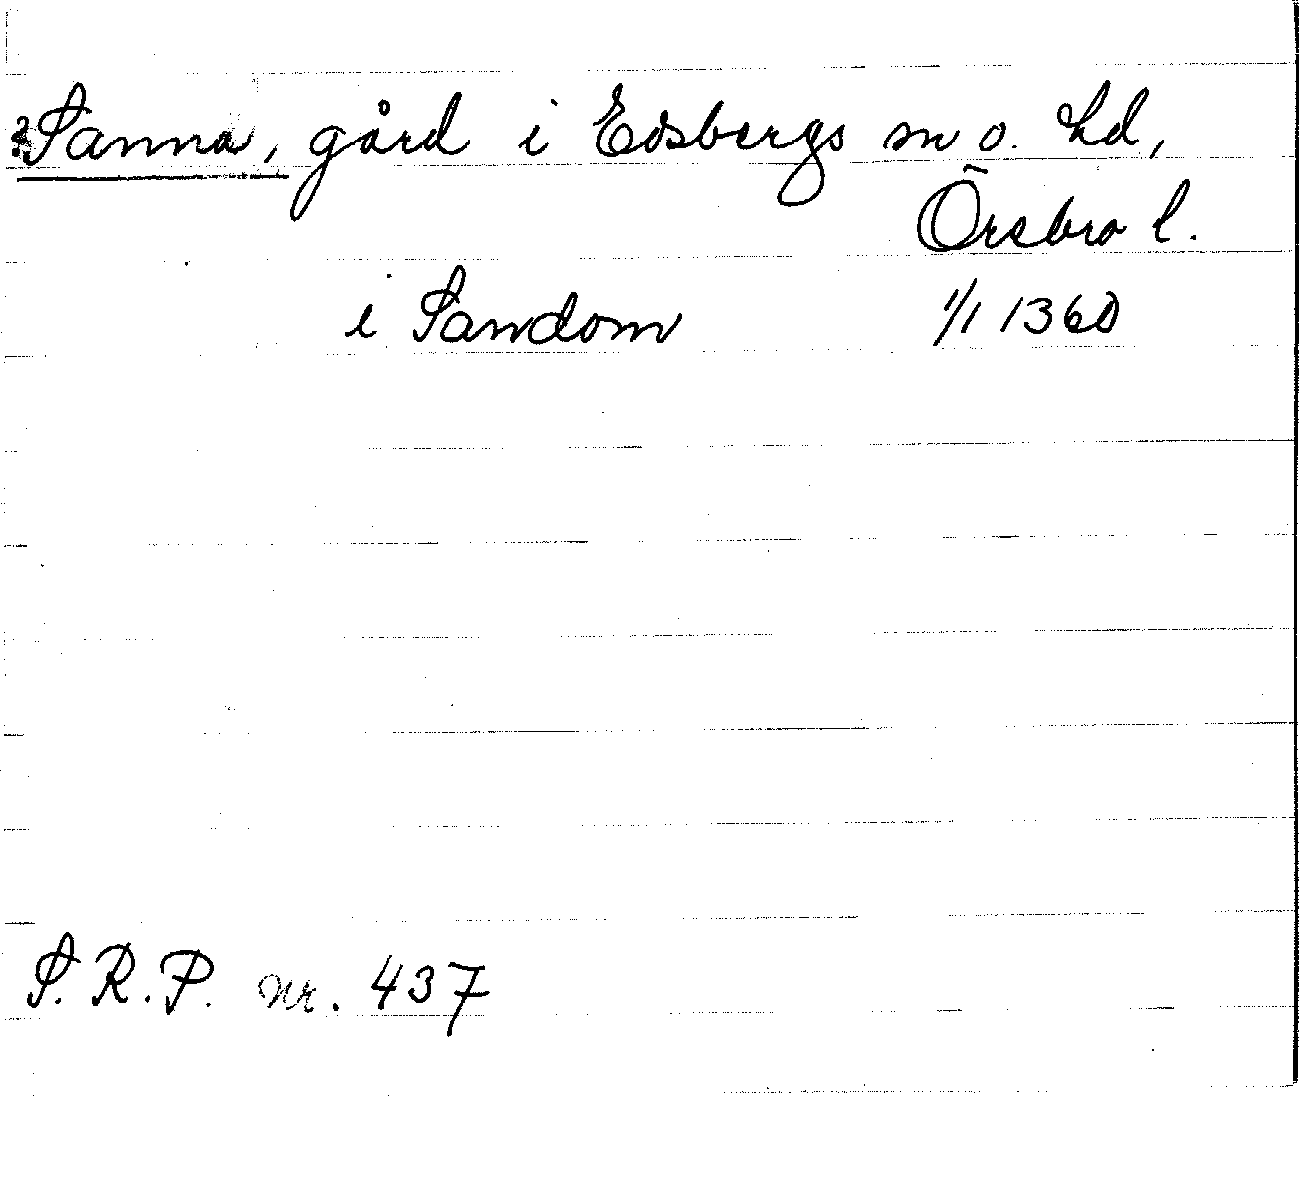 ?Sanna, gård i Edsbergs sn o. hd,
Örebro l.
i Sandom 1/1 1360
S.R.P. nr. 437